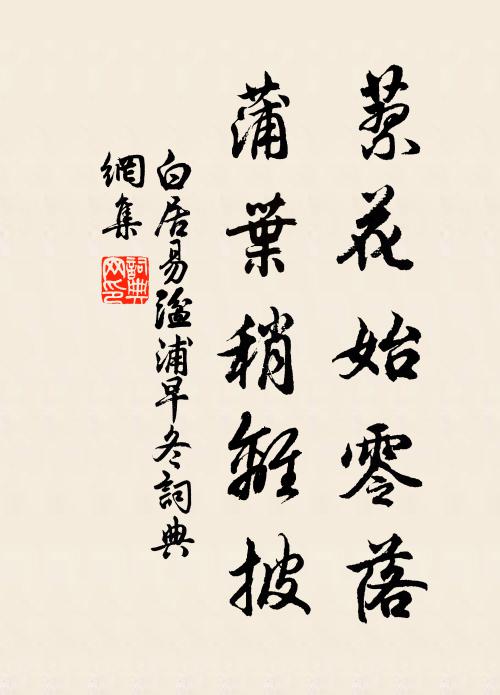 蓼花始零落
蒲葉稍離披
白居易湓浦早冬詞典
網集
詞典
网印